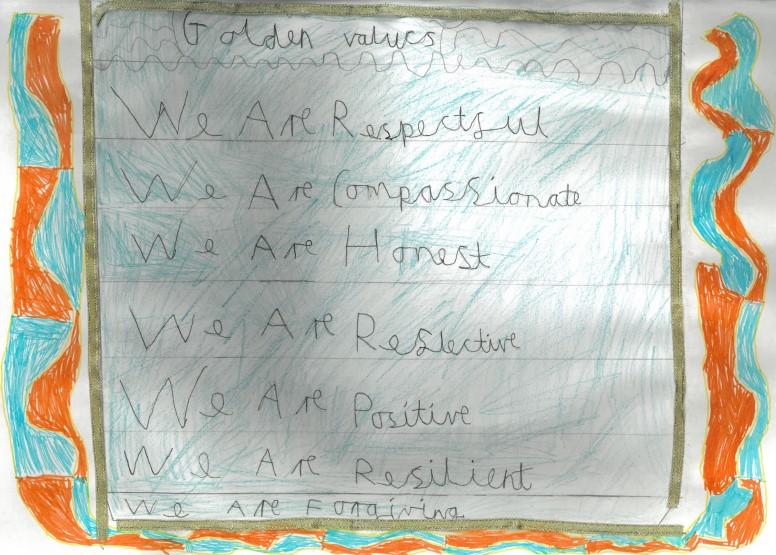 Golden values
We Are Respectful
We Are Compassionate
We Are Honest
We Are Reflective
We Are Positive
We Are Resilient
We Are Forgiving